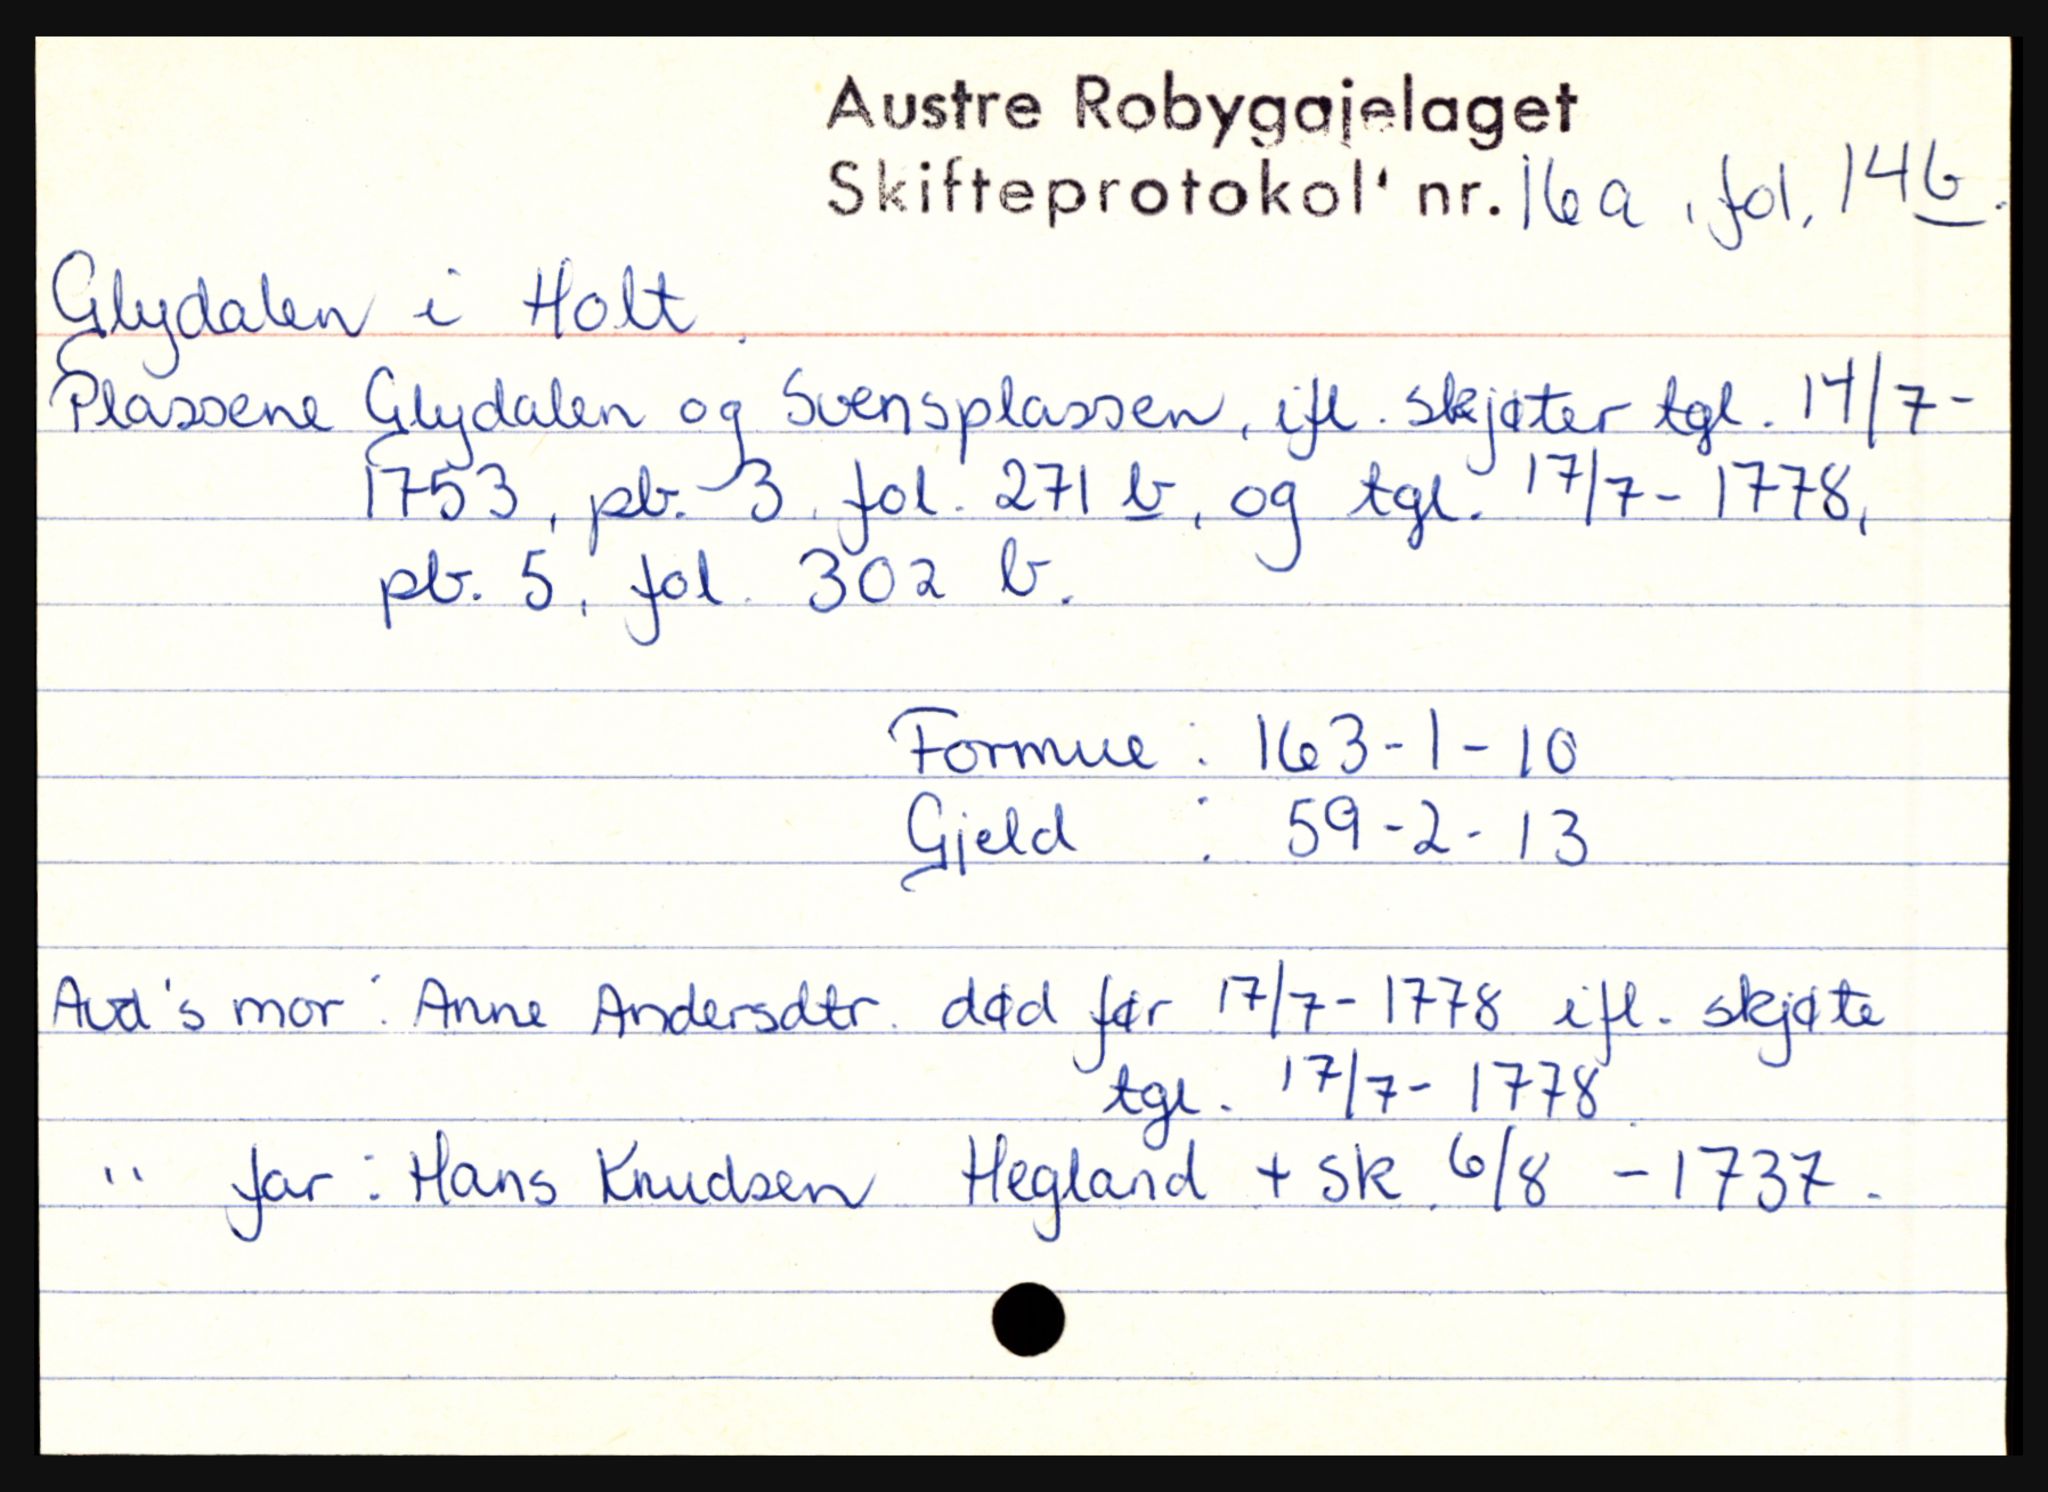 Austre Robygajelaget
Skifteprotokol' nr. 16a, fol. 14b.
Glydalen i Holt.
Plassene Glydalen og Svensplassen, ifl. skjøter tgl. 14/7-
1753, pb. 3, fol. 271 b, og tgl. 17/7-1778,
pb. 5, fol. 302 b.
Formue : 163-1-10
Gjeld : 59-2-13
Avd's mor : Anne Andersdtr. død før 17/7-1778 ifl. skjøte
tgl. 17/7-1778.
" far : Hans Knudsen Hegland + sk. 6/8 - 1737.